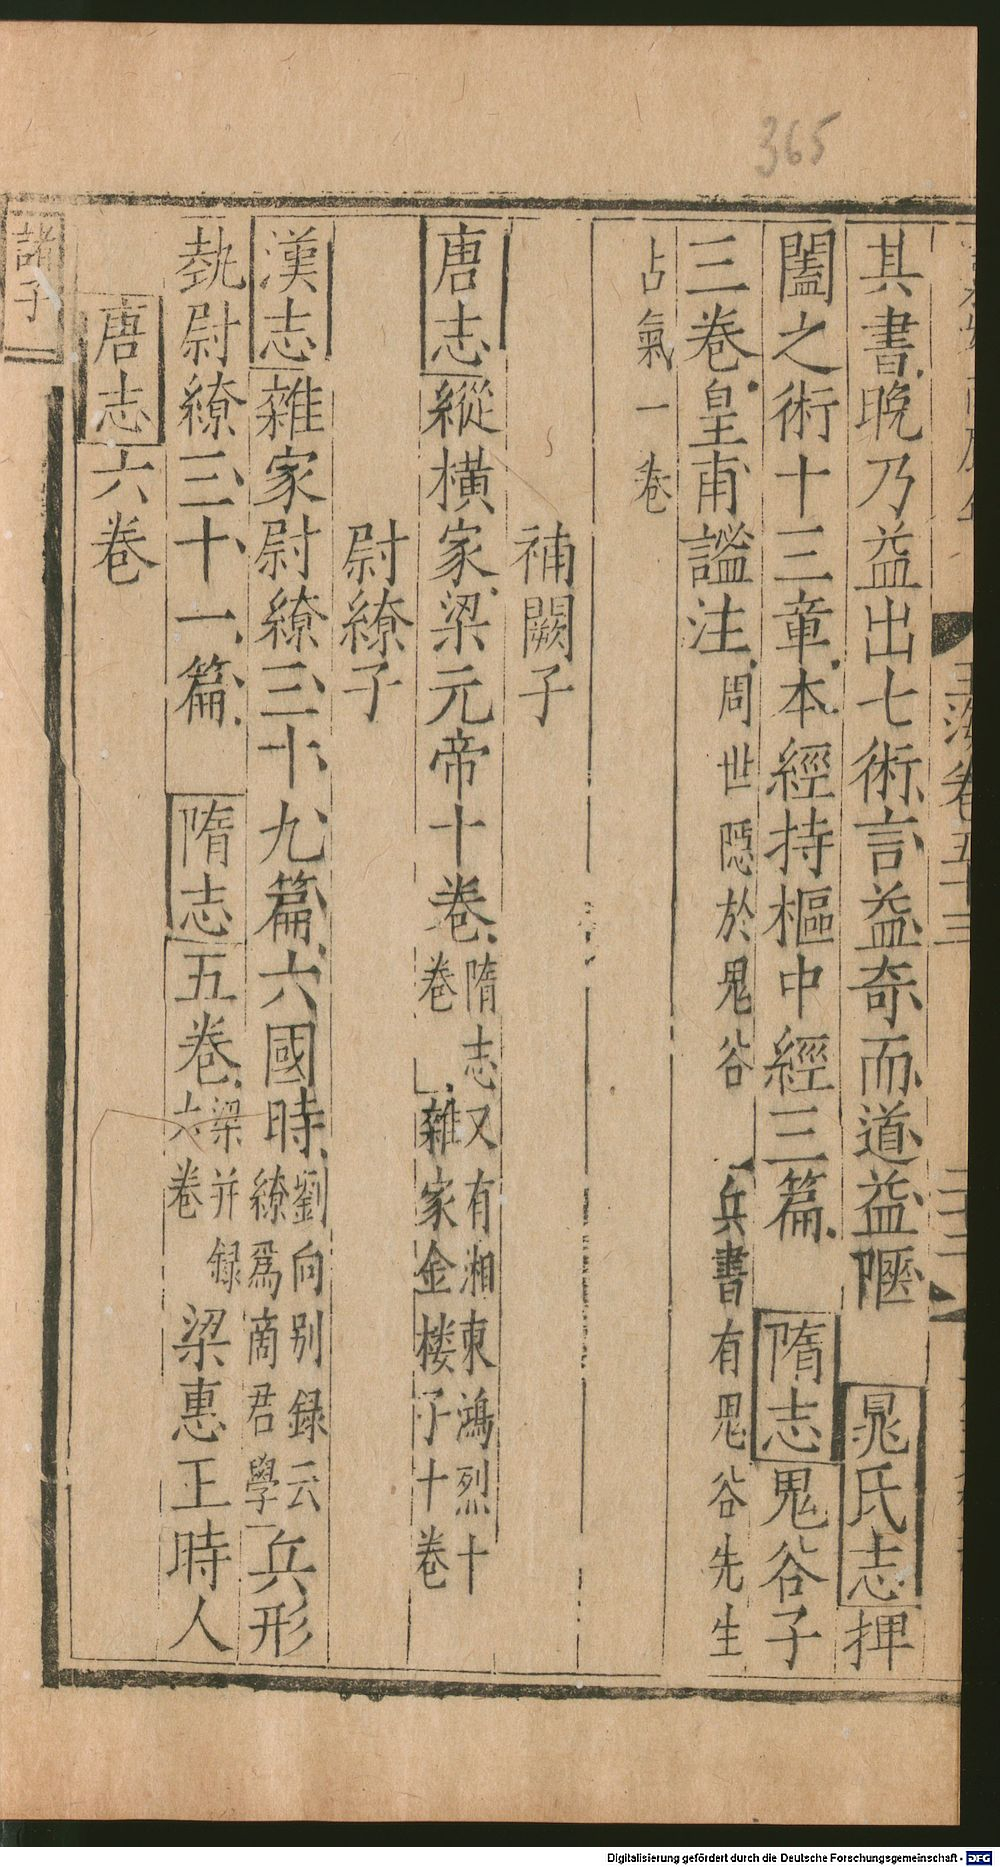 365
玉海卷五十三
二十三
其書晚乃益出七術言益奇而道益陿 晁氏志捭
闔之術十三章本經持樞中經三篇 隋志鬼谷子
三卷皇甫謐注周世隱於鬼谷 兵書有鬼谷先生
占氣一卷
補闕子
唐志縱横家梁元帝十卷隋志又有湘東鴻烈十
卷 雜家金楼子十卷
尉繚子
漢志雜家尉繚三十九篇六國時劉向别録云
繚爲商君學兵形
埶尉繚三十一篇 隋志五卷梁并録
六卷梁惠王時人
唐志六卷
諸子
Digitalisierung gefördert durch die Deutsche Forschungsgemeinschaft - DFG